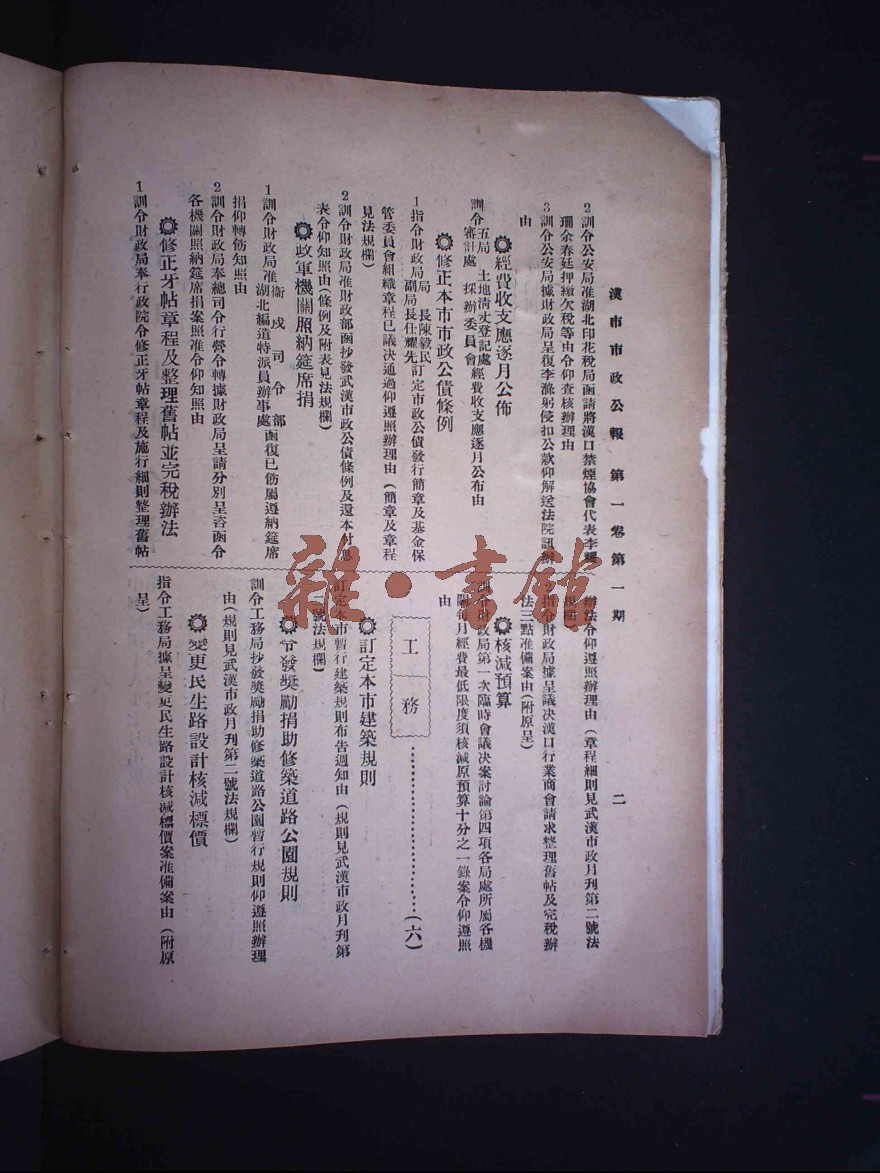 漢市市政公報 第一卷第一期 二
2訓令公安局准湖北印花稅局函請將漢口禁煙協會代表李
珊余春廷押繳欠稅等由令仰查核辦理由
3訓令公安局據財政局呈復李滌躬侵扣公款仰解送法院訊辦
由
經費收支應逐月公佈
訓令五局 審計處 土地清丈登記處 採辦委員會 經費收支應逐月公布由
修正本市市政公債條例
1指令財政局局長陳毅民 副局長任耀先 訂定市政公債發行簡章及基金保
管委員會組織章程已議決通過仰遵照辦理由(簡章及章程
見法規欄)
2訓令財政局准財政部函抄發武漢市政公債條例及還本付息
表令仰知照由(條例及附表見法規欄)
政軍機關照納筵席捐
1訓令財政局准衞戍司令部 湖北編遣特派員辦事處 函復已飭屬遵納筵席
捐仰轉飭知照由
2訓令財政局奉總司令行營令轉據財政局呈請分別呈咨函令
各機關照納筵席捐案照准令仰知照由
修正牙帖章程及整理舊帖並完稅辦法
1訓令財政局奉行政院令修正牙帖章程及施行細則整理舊帖
辦法令仰遵照辦理由(章程細則見武漢市政月刊第二號法
規欄)
指令財政局據呈議决漢口行業商會請求整理舊帖及完稅辦
法三點准備案由(附原呈)
核減預算
訓令財政局第一次臨時會議决案討論第四項各局處所屬各機
關每月經費最低限度須核減原預算十分之一錄案令仰遵照
由
工務……………………(六)
訂定本市建築規則
訂定本市暫行建築規則布告週知由(規則見武漢市政月刊第
號法規欄)
令發獎勵捐助修築道路公園規則
訓令工務局抄發獎勵捐助修築道路公園暫行規則仰遵照辦理
由(規則見武漢市政月刊第二號法規欄)
變更民生路設計核減標價
指令工務局據呈變更民生路設計核減標價案准備案由(附原
呈)
雜·書館